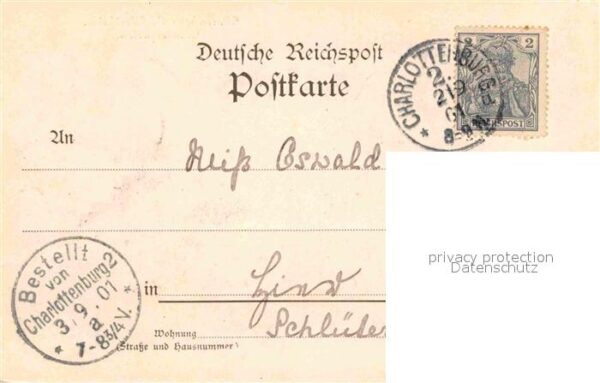 Deutsche Reichspost
Postkarte
2 2
REICHSPOST
CHARLOTTENBURG
2.9
01
8-9
An
Oswald
privacy protection
Datenschutz
Bestellt
von
Charlottenburg 2
3.9.01
a
7-8 3/4 V.
in
Hier
Wohnung
(Straße und Hausnummer)
Schlüter